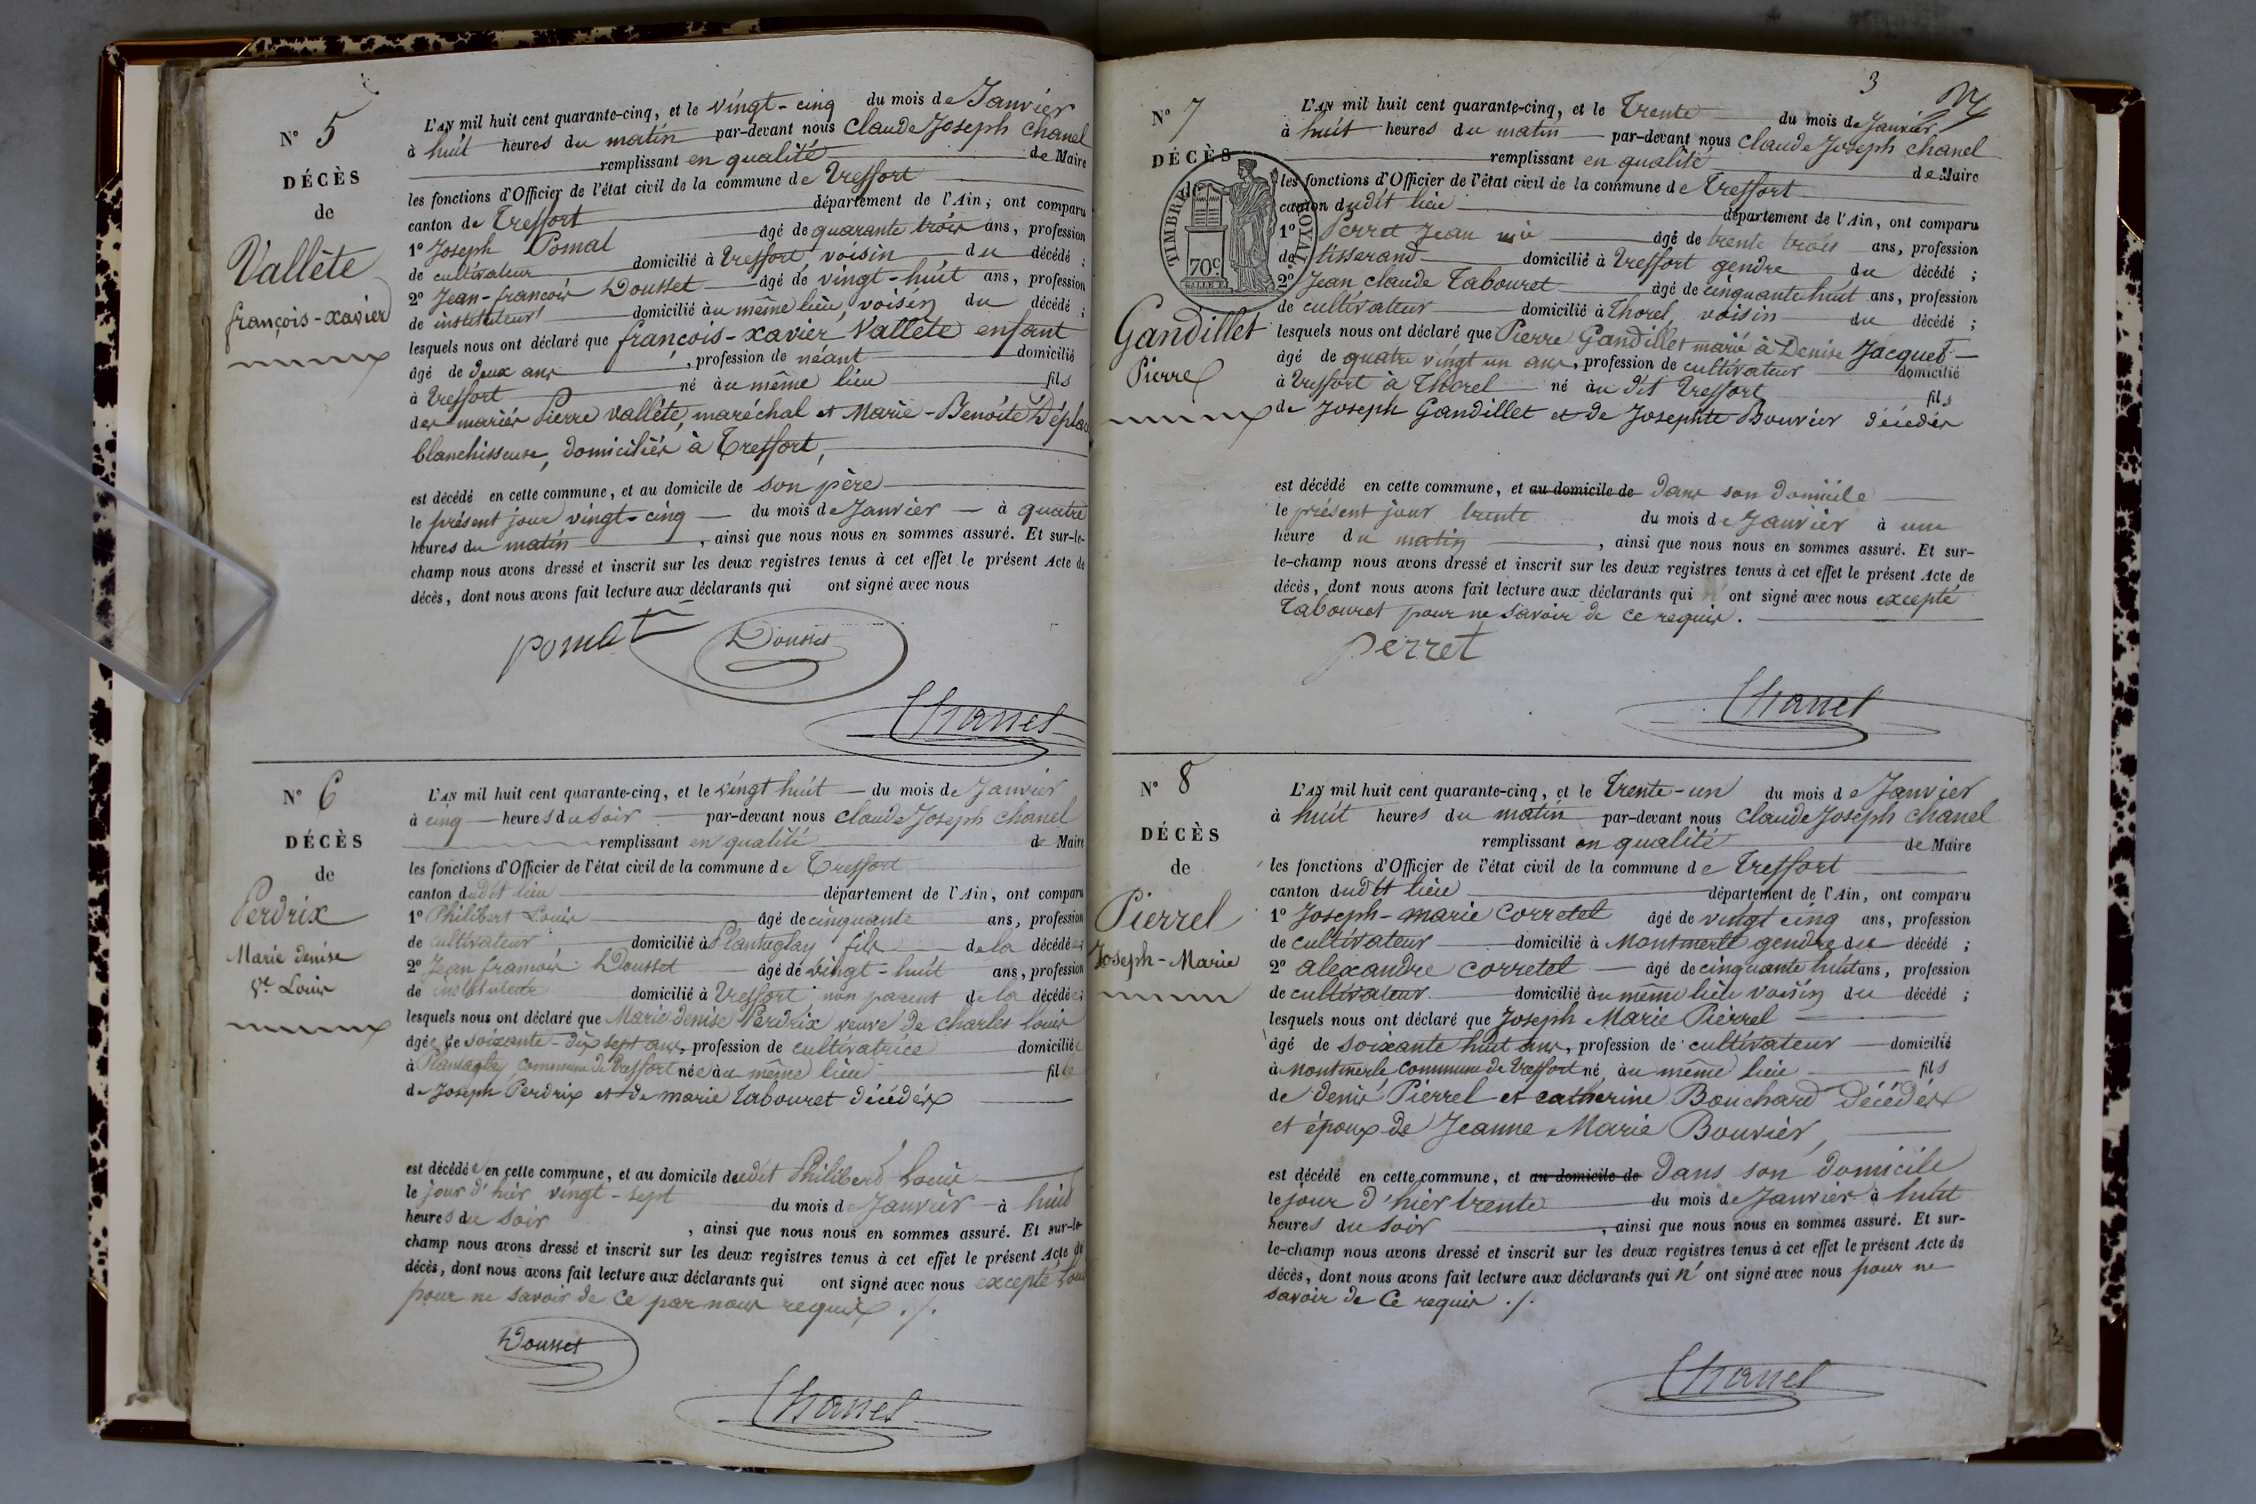 N° 5
DÉCÈS
de
Vallète
françois-xavier
L'AN mil huit cent quarante-cinq, et le vingt-cinq du mois de Janvier
à huit heures du matin par-devant nous Claude Joseph Chanel
remplissant en qualité de Maire
les fonctions d'Officier de l'état civil de la commune de Treffort
canton de Treffort département de l'Ain, ont comparu
1° Joseph Pomat âgé de quarante trois ans, profession
de cultivateur domicilié à Treffort, voisin du décédé ;
2° Jean-françois Dousset âgé de vingt-huit ans, profession
de instituteur domicilié au même lieu, voisin du décédé ;
lesquels nous ont déclaré que françois-xavier Vallète enfant
âgé de deux ans, profession de néant domicilié
à Treffort né au même lieu fils
des mariés Pierre Vallète, maréchal et Marie-Benoite
blanchisseuse, domiciliés à Treffort,
est décédé en cette commune, et au domicile de son père
le présent jour vingt-cinq du mois de Janvier à quatre
heures du matin, ainsi que nous nous en sommes assuré. Et sur-le-
champ nous avons dressé et inscrit sur les deux registres tenus à cet effet le présent Acte de
décès, dont nous avons fait lecture aux déclarants qui ont signé avec nous
pomat Dousset
Chanel
N° 6
DÉCÈS
de
Perdrix
Marie denise
Ve Louis
L'AN mil huit cent quarante-cinq, et le vingt huit du mois de Janvier
à cinq heures du soir par-devant nous Claude Joseph Chanel
remplissant en qualité de Maire
les fonctions d'Officier de l'état civil de la commune de Treffort
canton dudit lieu département de l'Ain, ont comparu
1° Philibert Louis âgé de cinquante ans, profession
de cultivateur domicilié à Plantaglay fils de la décédée ;
2° Jean françois Dousset âgé de vingt-huit ans, profession
de instituteur domicilié à Treffort non parent de la décédée ;
lesquels nous ont déclaré que Marie denise Perdrix veuve de Charles Louis
âgée de soixante-dix sept ans, profession de cultivatrice domiciliée
à Plantaglay commune de Treffort née au même lieu fille
de Joseph Perdrix et de marie Tabouret décédés
est décédée en cette commune, et au domicile dudit Philibert Louis
le jour d'hier vingt-sept du mois de Janvier à huit
heures du soir, ainsi que nous nous en sommes assuré. Et sur-le-
champ nous avons dressé et inscrit sur les deux registres tenus à cet effet le présent Acte de
décès, dont nous avons fait lecture aux déclarants qui ont signé avec nous excepté Louis
pour ne savoir de ce par nous requis ./.
Dousset
Chanel
3
N° 7
DÉCÈS
de
TIMBRE ROYAL
70c
Gandillet
Pierre
L'AN mil huit cent quarante-cinq, et le Trente du mois de Janvier
à huit heures du matin par-devant nous Claude Joseph Chanel
remplissant en qualité de Maire
les fonctions d'Officier de l'état civil de la commune de Treffort
canton dudit lieu département de l'Ain, ont comparu
1° Perret Jean âgé de trente trois ans, profession
de tisserand domicilié à Treffort gendre du décédé ;
2° Jean claude Tabouret âgé de cinquante huit ans, profession
de cultivateur domicilié à Thorel, voisin du décédé ;
lesquels nous ont déclaré que Pierre Gandillet marié à Denise Jacquet
âgé de quatre vingt un ans, profession de cultivateur domicilié
à Treffort à Thorel né au dit Treffort fils
de Joseph Gandillet et de Josephte Bouvier décédés
est décédé en cette commune, et au domicile de dans son domicile
le présent jour trente du mois de Janvier à une
heure du matin, ainsi que nous nous en sommes assuré. Et sur-
le-champ nous avons dressé et inscrit sur les deux registres tenus à cet effet le présent Acte de
décès, dont nous avons fait lecture aux déclarants qui ont signé avec nous excepté
Tabouret pour ne savoir de ce requis.
perret
Chanel
N° 8
DÉCÈS
de
Pierrel
Joseph-Marie
L'AN mil huit cent quarante-cinq, et le Trente-un du mois de Janvier
à huit heures du matin par-devant nous Claude Joseph Chanel
remplissant en qualité de Maire
les fonctions d'Officier de l'état civil de la commune de Treffort
canton dudit lieu département de l'Ain, ont comparu
1° Joseph-marie Corretel âgé de vingt cinq ans, profession
de cultivateur domicilié à Montmerle gendre du décédé ;
2° alexandre corretel âgé de cinquante huit ans, profession
de cultivateur domicilié au même lieu voisin du décédé ;
lesquels nous ont déclaré que Joseph Marie Pierrel
âgé de soixante huit ans, profession de cultivateur domicilié
à Montmerle commune de Treffort né au même lieu fils
de denis Pierrel et catherine Bouchard décédés
et époux de Jeanne Marie Bouvier,
est décédé en cette commune, et au domicile de dans son domicile
le jour d'hier trente du mois de Janvier à huit
heures du soir, ainsi que nous nous en sommes assuré. Et sur-
le-champ nous avons dressé et inscrit sur les deux registres tenus à cet effet le présent Acte de
décès, dont nous avons fait lecture aux déclarants qui n'ont signé avec nous pour ne
savoir de ce requis ./.
Chanel